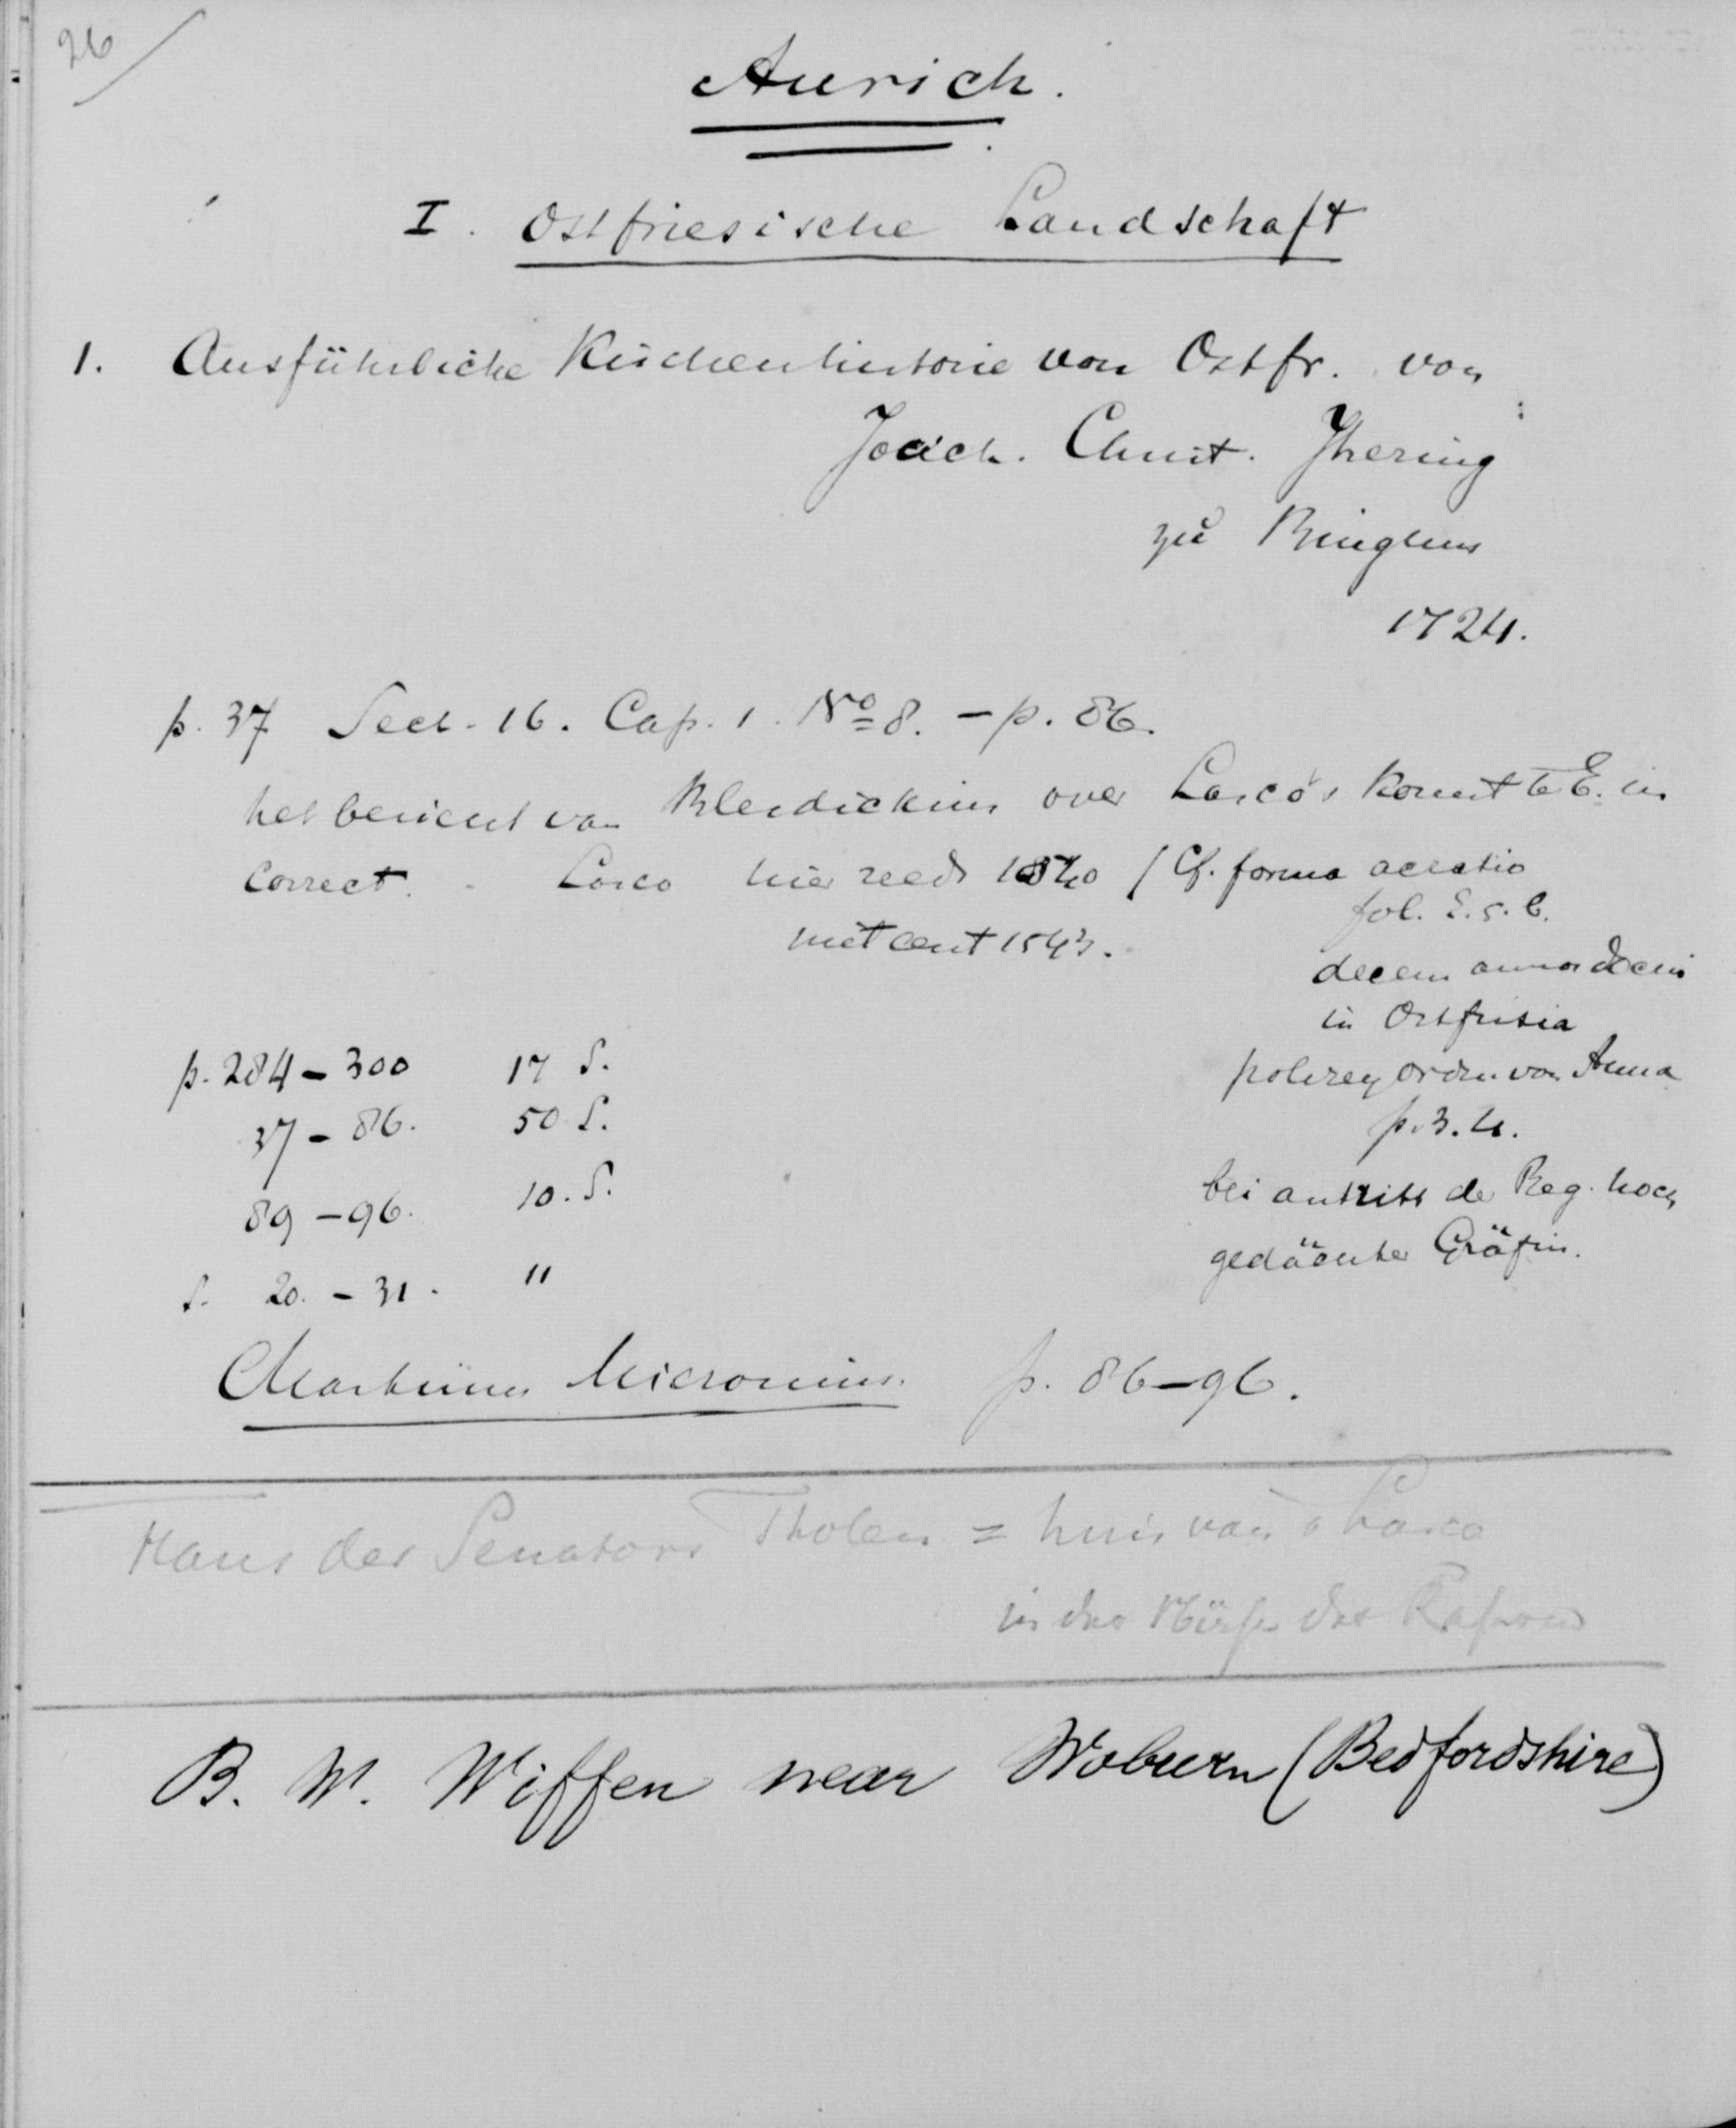 26
Aurich.
I. Ostfriesische Landschaft
1. Ausführliche Kirchenhistorie von Ostfr. von
Joach. Christ. Ihering
zu Ringhum
1724.
p. 37 Sect. 16. Cap. 1. No 8. – p. 86.
het bericht van over Lasco's komst te E. in
correct. Lasco hier reeds 1540 / Cf. forma ac ratio
fol. E. 5. b.
niet eerst 1543.
decem annos
in Ostfrisia
p. 284 – 300 17 S.
polizey ordn. von Anna
37 – 86. 50 S.
p. 3. 4.
89 – 96. 10. S.
bei antritt der Reg. hoch
gedächter Gräfin.
S. 20. – 31. "
Martinus Micronius. p. 86–96.
Haus des Senators Tholen = huis van a Lasco
in der des
B. W. Wiffen near Woburn (Bedfordshire)